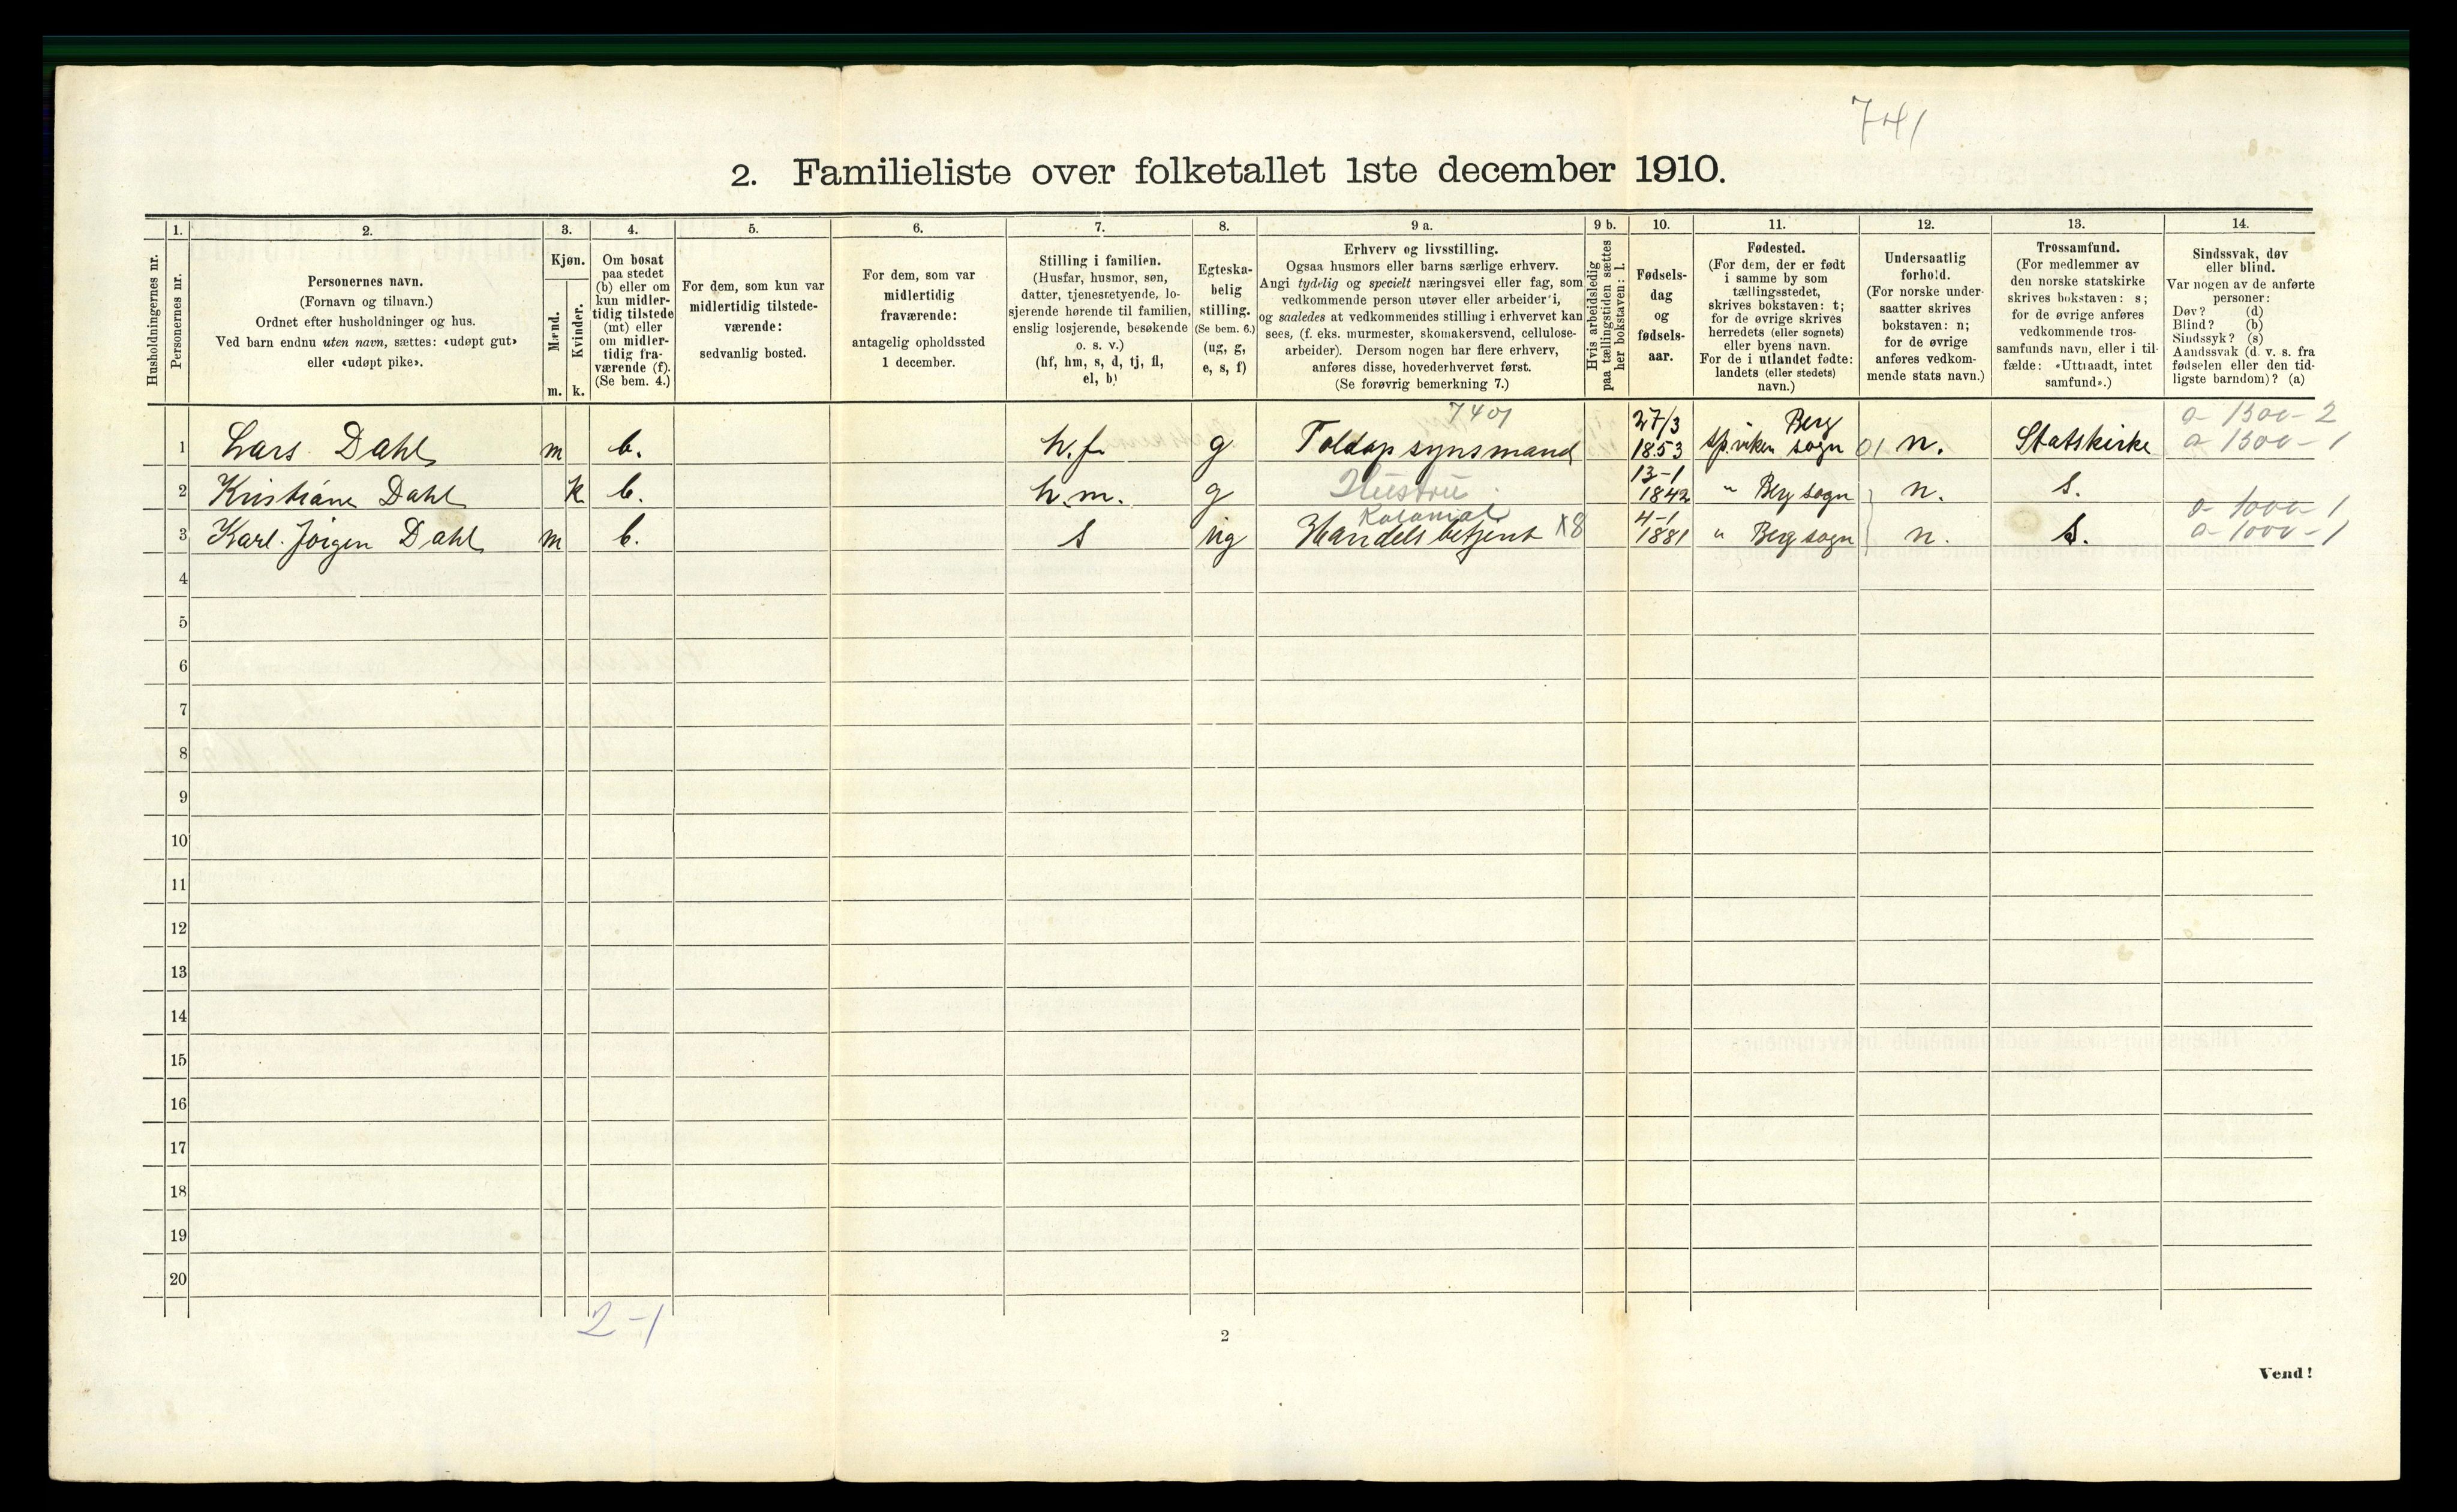 741
2. Familieliste over folketallet 1ste december 1910.
Husholdningernes nr.
1.
Personernes nr.
2.
Personernes navn.
(Fornavn og tilnavn.)
Ordnet efter husholdninger og hus.
Ved barn endnu uten navn, sættes: «udøpt gut»
eller «udøpt pike».
3.
Kjøn.
Mænd.
m.
Kvinder.
k.
4.
Om bosat
paa stedet
(b) eller om
kun midler-
tidig tilstede
(mt) eller
om midler-
tidig fra-
værende (f).
(Se bem. 4.)
5.
For dem, som kun var
midlertidig tilstede-
værende:
sedvanlig bosted.
6.
For dem, som var
midlertidig
fraværende:
antagelig opholdssted
1 december.
7.
Stilling i familien.
(Husfar, husmor, søn,
datter, tjenestetyende, lo-
sjerende hørende til familien,
enslig losjerende, besøkende
o. s. v.)
(hf, hm, s, d, tj, fl,
el, b)
8.
Egteska-
belig
stilling.
(Se bem. 6.)
(ug, g,
e, s, f)
9 a.
Erhverv og livsstilling.
Ogsaa husmors eller barns særlige erhverv.
Angi tydelig og specielt næringsvei eller fag, som
vedkommende person utøver eller arbeider i,
og saaledes at vedkommendes stilling i erhvervet kan
sees, (f. eks. murmester, skomakersvend, cellulose-
arbeider). Dersom nogen har flere erhverv,
anføres disse, hovederhvervet først.
(Se forøvrig bemerkning 7.)
9 b.
Hvis arbeidsledig
paa tællingstiden sættes
her bokstaven: l.
10.
Fødsels-
dag
og
fødsels-
aar.
11.
Fødested.
(For dem, der er født
i samme by som
tællingsstedet,
skrives bokstaven: t;
for de øvrige skrives
herredets (eller sognets)
eller byens navn.
For de i utlandet fødte:
landets (eller stedets)
navn.)
12.
Undersaatlig
forhold.
(For norske under-
saatter skrives
bokstaven: n;
for de øvrige
anføres vedkom-
mende stats navn.)
13.
Trossamfund.
(For medlemmer av
den norske statskirke
skrives bokstaven: s;
for de øvrige anføres
vedkommende tros-
samfunds navn, eller i til-
fælde: «Uttraadt, intet
samfund».)
14.
Sindssvak, døv
eller blind.
Var nogen av de anførte
personer:
Døv? (d)
Blind? (b)
Sindssyk? (s)
Aandssvak (d. v. s. fra
fødselen eller den tid-
ligste barndom)? (a)
7401 27/3 Berg a- 1500-2
1 Lars Dahl m b. h.f. g Toldopsynsmand 1853 sogn 01 n. Statskirke a- 1500-1
13-1
2 Kristiane Dahl k b. h.m. g Hustru 1842 " Berg sogn n. s.
Kolonial 4-1 a- 1000-1
3 Karl. Jörgen Dahl m b. s ug Handelsbetjent X8 1881 " Berg sogn n. s. a- 1000-1
4
5
6
7
8
9
10
11
12
13
14
15
16
17
18
19
20
2-1
2
Vend!